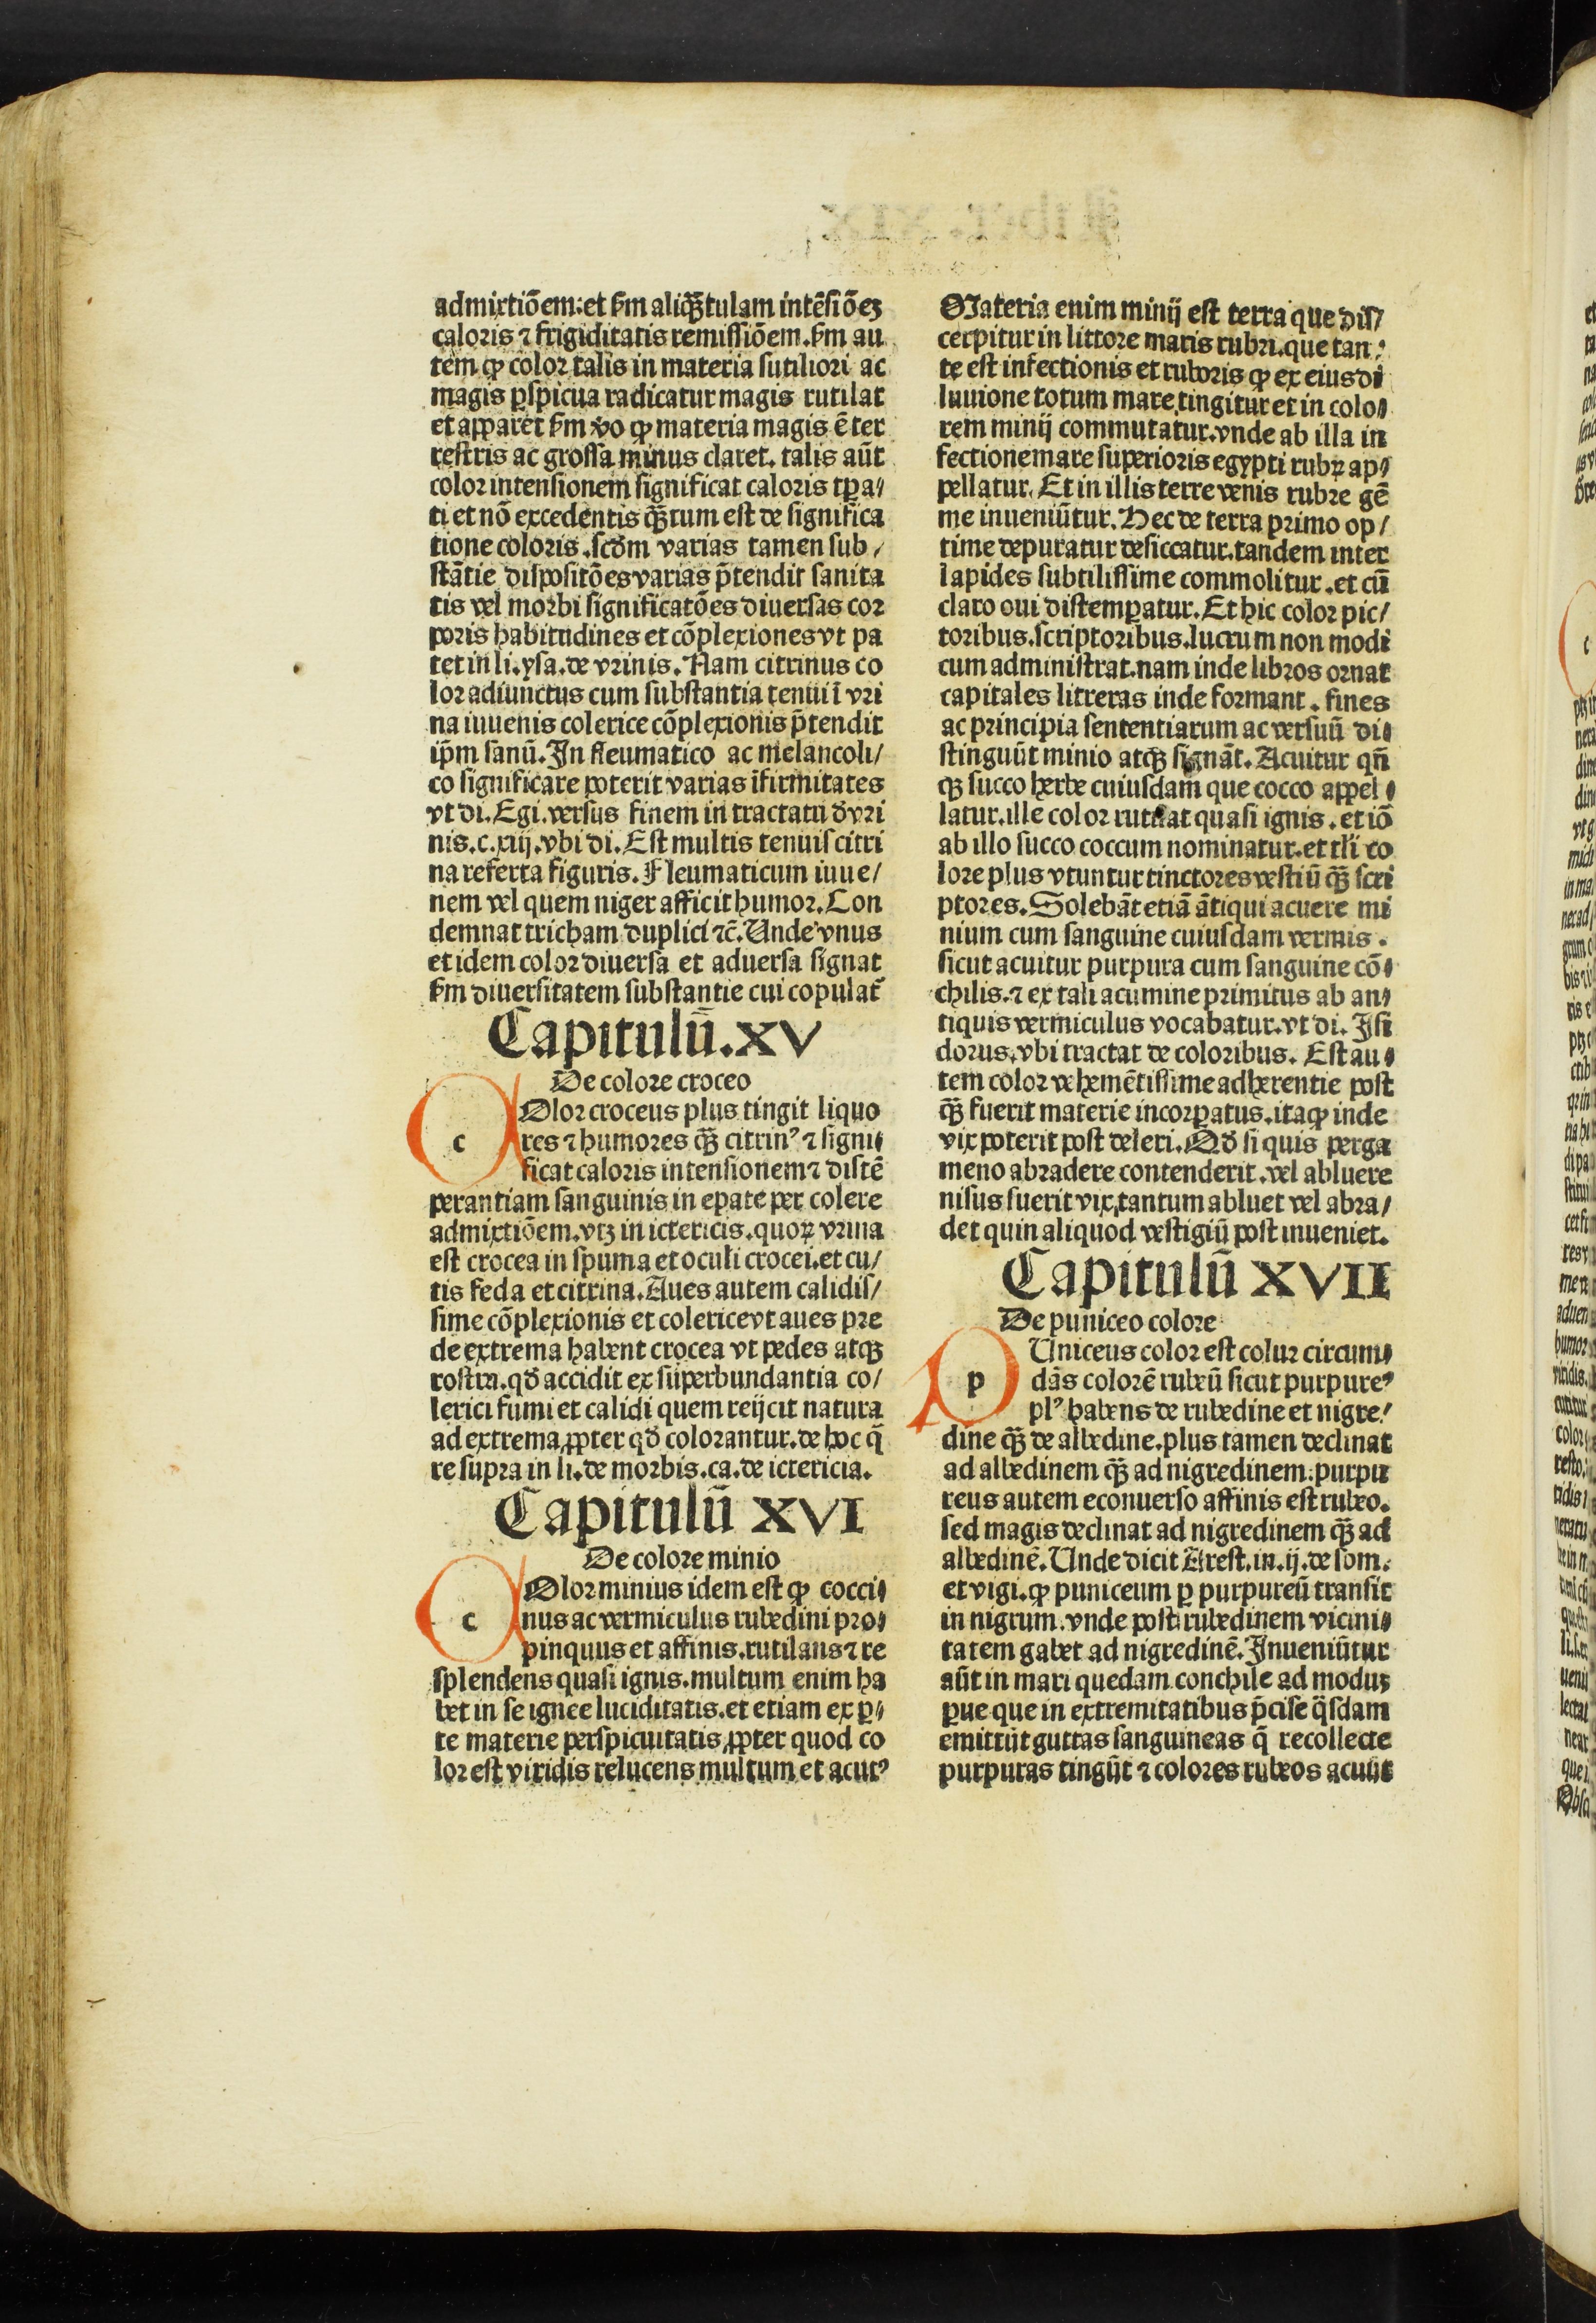 admixtiõem:et ẜm aliqȝ̃tulam intẽsiõeȝ
caloris ⁊ frigiditatis remissiõem.ẜm au
tem ꝙ color talis in materia sutiliori ac
magis ꝑspicua radicatur magis rutilat
et apparet ẜm ꝟo ꝙ materia magis ẽ ter
restris ac grossa minus claret. talis aũt
color intensionem significat caloris tꝑa⸗
ti et nõ excedentis qȝ̃tum est de significa
tione coloris .scd̃m varias tamen sub⸗
stãtie dispositões varias p̃tendit sanita
tis vel morbi significatões diuersas cor
poris habitudines et cõplexiones vt pa
tet in li.ysa.de vrinis. Nam citrinus co
lor adiunctus cum substantia tenui ĩ vri
na iuuenis colerice cõplexionis p̃tendit
ip̃m sanũ. In fleumatico ac melancoli⸗
co significare poterit varias ĩfirmitates
vt di. Egi.versus finem in tractatu d̕ vri
nis.c.xiij.vbi di. Est multis tenuis citri
na referta figuris. Fleumaticum iuue⸗
nem vel quem niger afficit humor. Con
demnat tricham duplici ⁊c̃. Unde vnus
et idem color diuersa et aduersa signat
ẜm diuersitatem substantie cui copulat̃
Capitulũ.XV
De colore croceo
c Olor croceus plus tingit liquo
res ⁊ humores qȝ̃ citrinꝰ ⁊ signi⸗
ficat caloris intensionem ⁊ distẽ
perantiam sanguinis in epate per colere
admixtiõem.vtȝ in ictericis.quoꝝ vrina
est crocea in spuma et oculi crocei.et cu⸗
tis feda et citrina. Aues autem calidis⸗
sime cõplexionis et colerice vt aues pre
de extrema habent crocea vt pedes atqȝ
rostra.qd̕ accidit ex superbundantia co⸗
lerici fumi et calidi quem reijcit natura
ad extrema ꝓpter qd̕ colorantur.de hoc q̃
re supra in li.de morbis.ca.de ictericia.
Capitulũ XVI
De colore minio
c Olor minius idem est ꝙ cocci⸗
nus ac vermiculus rubedini pro⸗
pinquus et affinis.rutilans ⁊ re
splendens quasi ignis.multum enim ha
bet in se ignee luciditatis.et etiam ex ꝑ⸗
te materie perspicuitatis ꝓpter quod co
lor est viridis relucens multum et acutꝰ
Materia enim minij est terra que dis⸗
cerpitur in littore maris rubri.que tan⸗
te est infectionis et ruboris ꝙ ex eius di
luuione totum mare tingitur et in colo⸗
rem minij commutatur.vnde ab illa in
fectione mare superioris egypti rubꝝ ap⸗
pellatur. Et in illis terre venis rubre gẽ
me inueniũtur. Hec de terra primo op⸗
time depuratur desiccatur.tandem inter
lapides subtilissime commolitur .et cũ
claro oui distemꝑatur. Et hic color pic⸗
toribus.scriptoribus.lucrum non modi
cum administrat.nam inde libros ornat
capitales litteras inde formant . fines
ac principia sententiarum ac versuũ di⸗
stinguũt minio atqȝ signãt. Acuitur qñ
qȝ succo herbe cuiusdam que cocco appel⸗
latur.ille color rutilat quasi ignis .et iõ
ab illo succo coccum nominatur.et tl̃i co
lore plus vtuntur tinctores vestiũ qȝ̃ scri
ptores. Solebãt etiã ãtiqui acuere mi
nium cum sanguine cuiusdam vermis .
sicut acuitur purpura cum sanguine cõ⸗
chilis.⁊ ex tali acumine primitus ab an⸗
tiquis vermiculus vocabatur.vt di. Isi
dorus.vbi tractat de coloribus. Est au⸗
tem color vehemẽtissime adherentie post
qȝ̃ fuerit materie incorꝑatus.itaqꝫ inde
vix poterit post deleri. Qd̕ si quis perga
meno abradere contenderit .vel abluere
nisus fuerit vix tantum abluet vel abra⸗
det quin aliquod vestigiũ post inueniet.
Capitulũ XVII
De puniceo colore
p Uniceus color est color circum⸗
dãs colorẽ rubeũ sicut purpureꝰ
plꝰ habens de rubedine et nigre⸗
dine qȝ̃ de albedine.plus tamen declinat
ad albedinem qȝ̃ ad nigredinem.purpu
reus autem econuerso affinis est rubeo.
sed magis declinat ad nigredinem qȝ̃ ad
albedinẽ. Unde dicit Arest.in.ij.de som.
et vigi.ꝙ puniceum ꝑ purpureũ transit
in nigrum.vnde post rubedinem vicini⸗
tatem gabet ad nigredinẽ. Inueniũtur
aũt in mari quedam conchile ad moduȝ
ꝑue que in extremitatibus p̃cise q̃sdam
emittũt guttas sanguineas q̃ recollecte
purpuras tingũt ⁊ colores rubeos acuũt